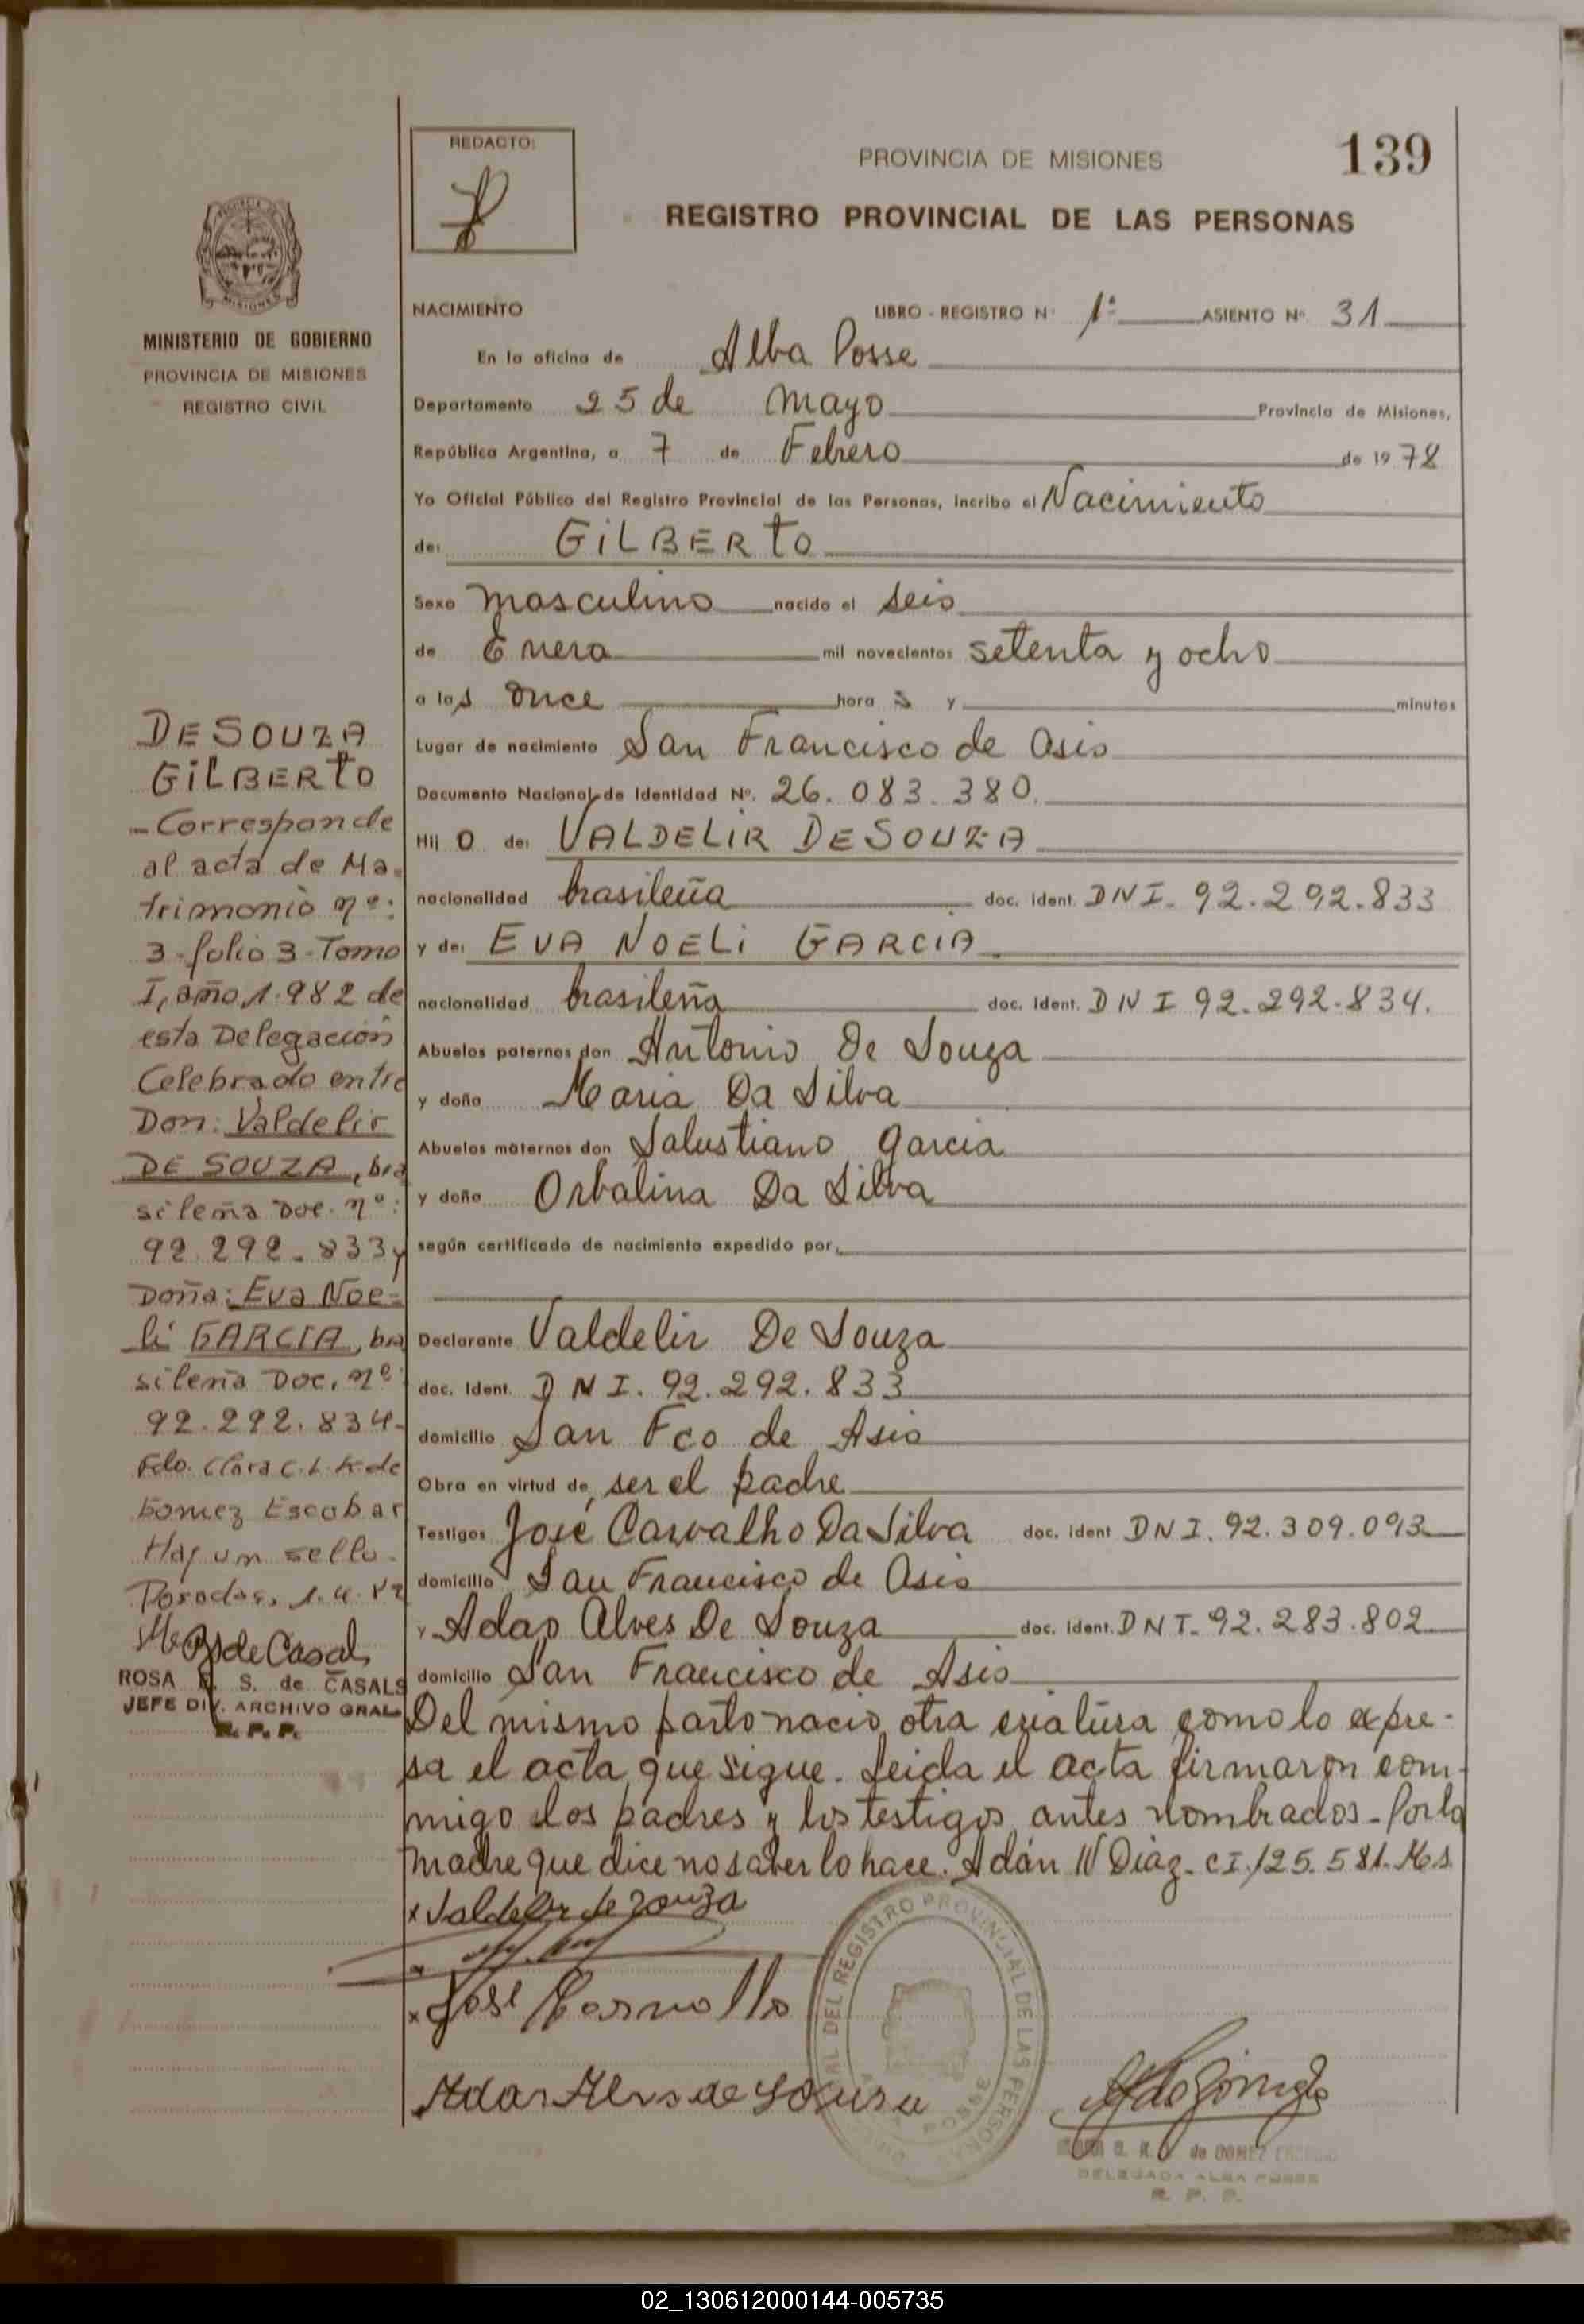 REDACTO:
PROVINCIA DE MISIONES
139
REGISTRO PROVINCIAL DE LAS PERSONAS
MISIONES
MINISTERIO DE GOBIERNO
PROVINCIA DE MISIONES
REGISTRO CIVIL
NACIMIENTO LIBRO - REGISTRO Nº 1º ASIENTO Nº 31
En la oficina de Alba Posse
Departamento 25 de Mayo Provincia de Misiones,
República Argentina, a 7 de Febrero de 1978
Yo Oficial Público del Registro Provincial de las Personas, incribo el Nacimiento
de: GILBERTO
Sexo masculino nacido el seis
de Enero mil novecientos setenta y ocho
a las once horas y minutos
Lugar de nacimiento San Francisco de Asis
Documento Nacional de Identidad Nº. 26.083.380.
Hijo de: VALDELIR DE SOUZA
nacionalidad brasileña doc. ident. DNI. 92.292.833
y de: EVA NOELI GARCIA
nacionalidad brasileña doc. ident. DNI 92.292.834.
Abuelos paternos don Antonio De Souza
y doña Maria Da Silva
Abuelos maternos don Salustiano Garcia
y doña Orbalina Da Silva
según certificado de nacimiento expedido por
Declarante Valdelir De Souza
doc. Ident. DNI. 92.292.833
domicilio San Fco de Asis
Obra en virtud de ser el padre
Testigos José Carvalho Da Silva doc. ident DNI. 92.309.093
domicilio San Francisco de Asis
y Adao Alves De Souza doc. ident. DNI. 92.283.802
domicilio San Francisco de Asis
Del mismo parto nacio otra criatura como lo expre-
sa el acta que sigue. Leida el acta firmaron con-
migo los padres y los testigos antes nombrados. Por la
madre que dice no saber lo hace. Adán W Diaz. CI.125.581. Ms
x Valdelir de Souza
x José Carvallo
Adao Alves de Souza
DE SOUZA
GILBERTO
- Corresponde
al acta de Ma-
trimonio nº:
3-folio 3-Tomo
I, año 1.982 de
esta Delegación
Celebrado entre
Don: Valdelir
DE SOUZA, bra
sileña Doc. nº:
92.292.833 y
Doña: Eva Noe-
li GARCIA, bra
sileña Doc. nº
92.292.834-
Fdo. Clara C. L. K de
Gomez Escobar
Hay un sello.
Posadas, 1.4.82
ROSA E. S. de CASALS
JEFE DIV. ARCHIVO GRAL
R. P. P.
DEL REGISTRO PROVINCIAL DE LAS PERSONAS
POSSE
de GOMEZ
DELEGADA ALBA POSSE
R. P. P.
02_130612000144-005735